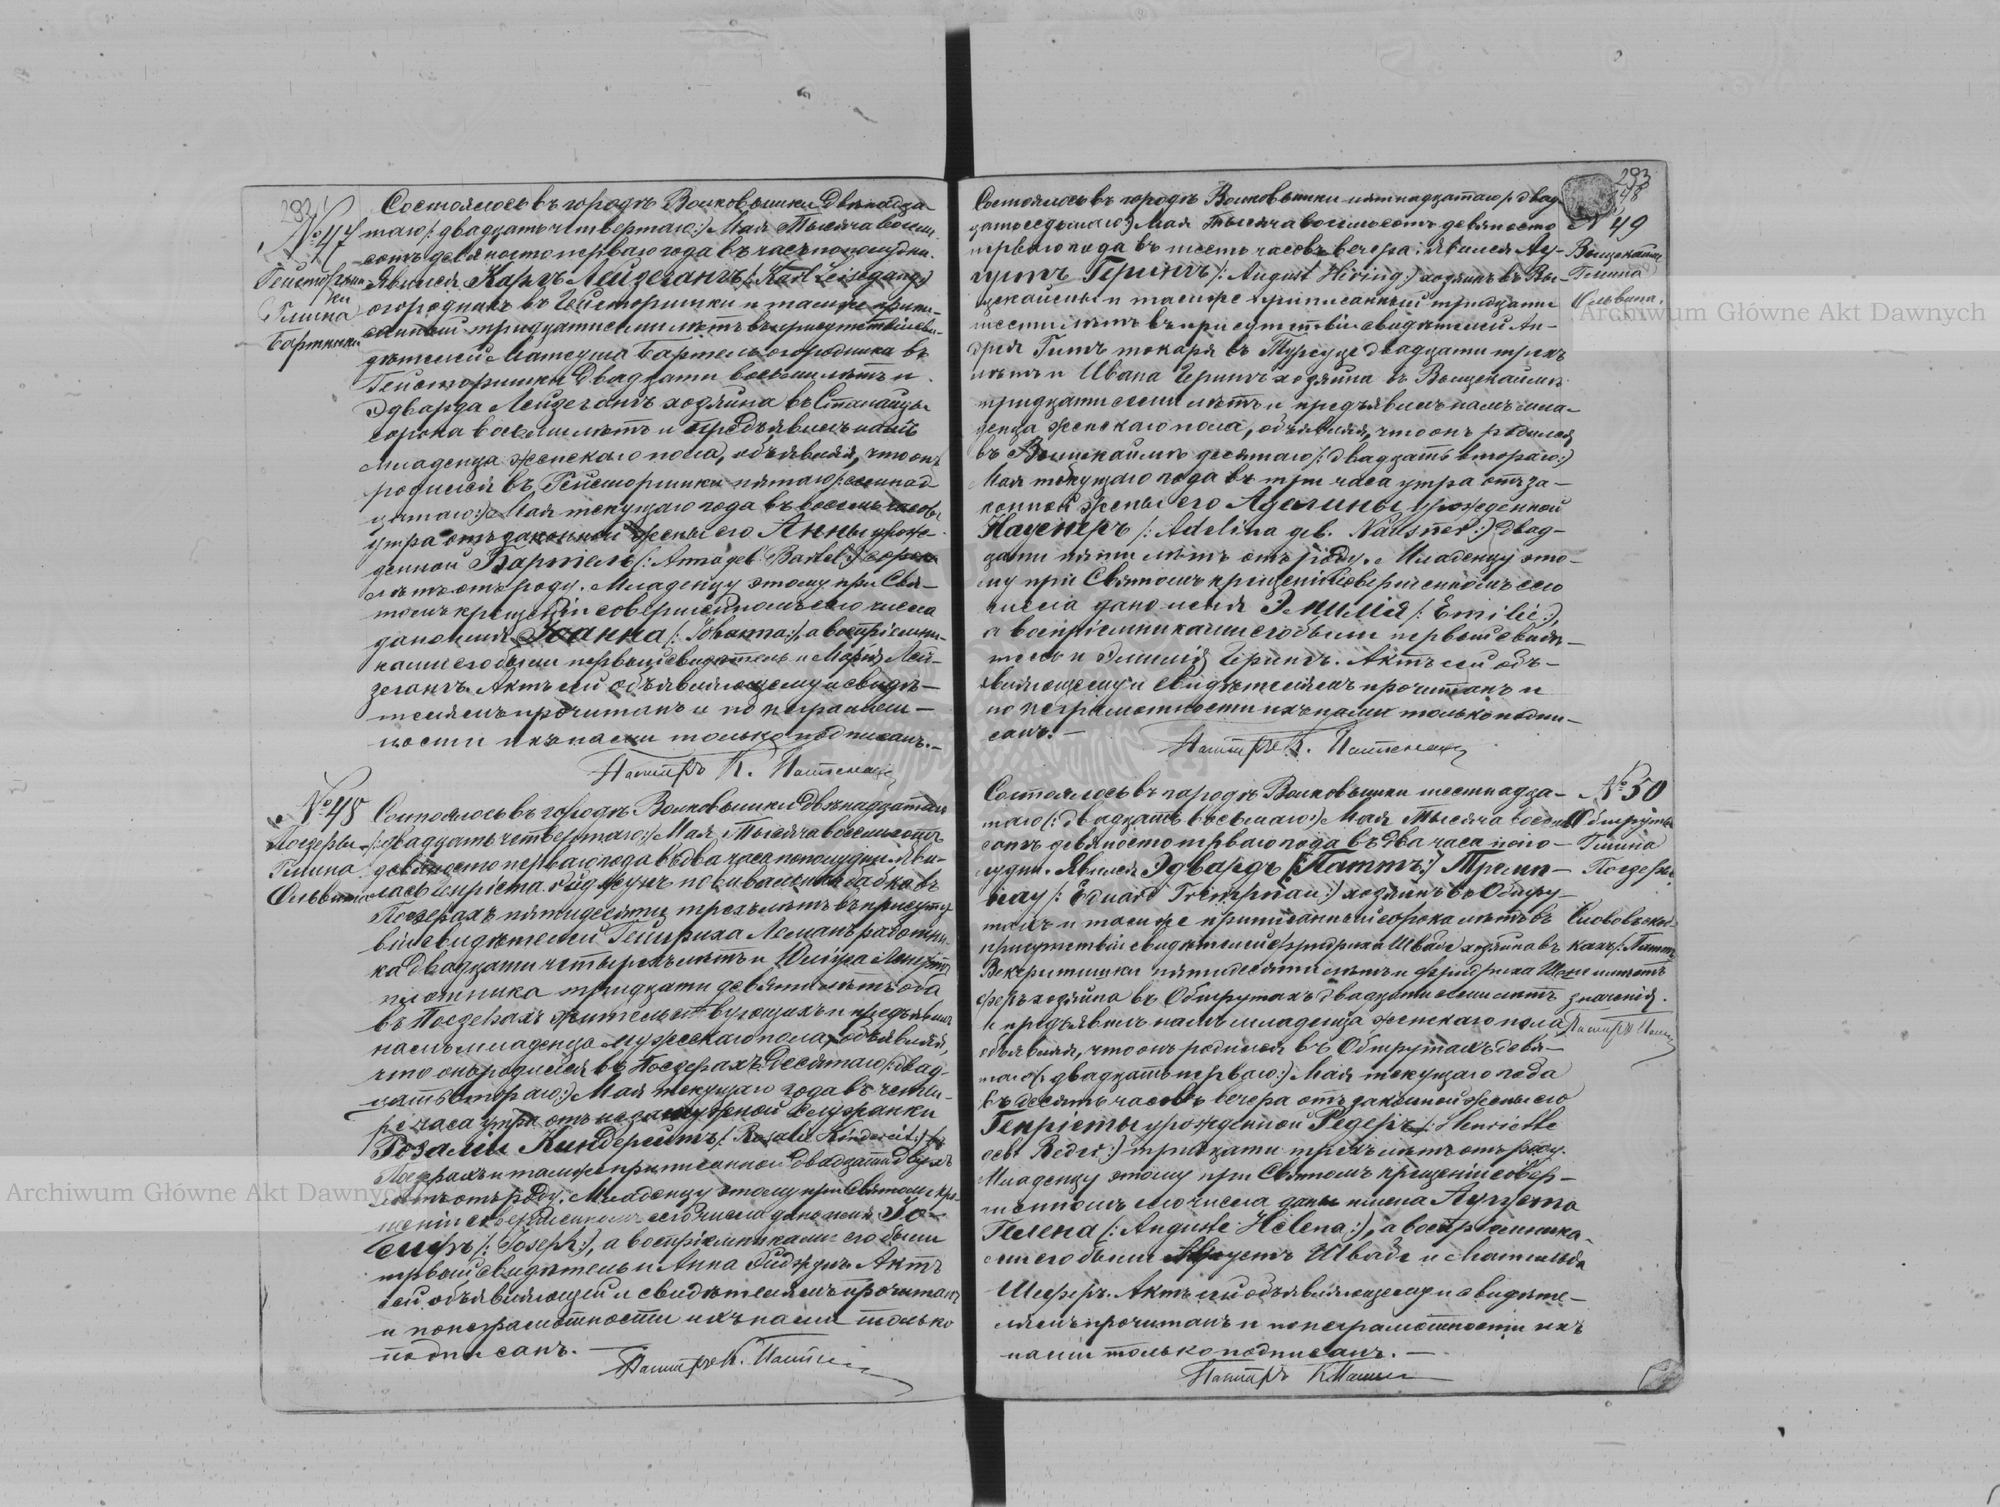 № 47
Гейсторишки
Гмина
Бартники
Состоялось въ городѣ Волковышки двѣнадца-
таго /: двадцать четвертаго :/ Мая Тысяча восемь
сотъ девяносто перваго года въ часъ пополудни.
Явился Карлъ Лейзегангъ /: Karl Leisegang :/
огородникъ въ Гейсторишки и тамъ же припи-
санный тридцати семи лѣтъ въ присутствіи сви-
дѣтелей Матеуша Бартель огородника въ
Гейсторишки двадцати восьми лѣтъ и
Эдварда Лейзегангъ хозяина въ
сорока восьми лѣтъ и предъявилъ намъ
младенца женскаго пола, объявляя, что онъ
родился въ Гейсторишки пятаго /: семнад-
цатаго :/ Мая текущаго года въ восемь часовъ
утра отъ законной жены его Анны урож-
денной Бартель /: Anna geb. Bartel :/ сорока
лѣтъ отъ роду. Младенцу этому при Свя-
томъ крещеніи совершенномъ сего числа
дано имя Іоанна /: Johanna :/, а воспріемни-
ками его были первый свидѣтель и Марія Лей-
зегангъ. Актъ сей объявляющему и свидѣ-
телямъ прочитанъ и по неграмот-
ности ихъ нами только подписанъ. —
Пасторъ К.
№ 48
Поезеры
Гмина
Ольвита
Состоялось въ городѣ Волковышки двѣнадцатаго
/: двадцать четвертаго :/ Мая Тысяча восемьсотъ
девяносто перваго года въ два часа пополудни. Яви-
лась повивальная бабка въ
Поезерахъ пятидесяти трехъ лѣтъ въ присутст-
віи свидѣтелей Гейнриха Леманъ работни-
ка двадцати четырехъ лѣтъ и
плотника тридцати девяти лѣтъ оба
въ Поезерахъ жительствующихъ и предъявила
намъ младенца мужескаго пола, объявляя,
что онъ родился въ Поезерахъ десятаго /: двад-
цать втораго :/ Мая текущаго года въ четы-
ре часа утра отъ незамужной служанки
Розаліи Киндерейтъ /: Rosalie Kindereit :/ въ
Поезерахъ и тамъ же приписанной двадцати двухъ
лѣтъ отъ роду. Младенцу этому при Святомъ кре-
щеніи совершенномъ сего числа дано имя Іо-
сифъ /: Joseph :/, а воспріемниками его были
первый свидѣтель и Анна Гиджунъ. Актъ
сей объявляющей и свидѣтелямъ прочитанъ
и по неграмотности ихъ нами только
подписанъ. —
Пасторъ К.
293
148
№ 49
Гмина
Ольвита.
Состоялось въ городѣ Волковышки пятнадцатаго /: двад-
цать седьмаго :/ Мая Тысяча восемьсотъ девяносто
перваго года въ шесть часовъ вечера. Явился Ав-
густъ Герингъ /: August Hiring :/ хозяинъ въ Ви-
и тамъ же приписанный тридцати
шести лѣтъ въ присутствіи свидѣтелей Ан-
дрея Гитъ токаря въ двадцати трехъ
лѣтъ и Ивана Герингъ хозяина въ
тридцати семи лѣтъ и предъявилъ намъ мла-
денца женскаго пола, объявляя, что онъ родился
въ десятаго /: двадцать втораго :/
Мая текущаго года въ три часа утра отъ за-
конной жены его Аделины урожденной
Науснеръ /: Adelina geb. Nausner :/ двад-
цати пяти лѣтъ отъ роду. Младенцу это-
му при Святомъ крещеніи совершенномъ сего
числа дано имя Эмилія /: Emilie :/,
а воспріемниками его были первый свидѣ-
тель и Эмилія Герингъ. Актъ сей объ-
являющему и свидѣтелямъ прочитанъ и
по неграмотности ихъ нами только подпи-
санъ. —
Пасторъ К.
№ 50
Обшруты
Гмина
Поезеры
Слово въ скоб-
кахъ /: Паттъ
не имѣетъ
значенія.
Состоялось въ городѣ Волковышки шестнадца-
таго /: двадцать восьмаго :/ Мая Тысяча восемь
сотъ девяносто перваго года въ два часа попо-
лудни. Явился Эдвардъ /: Паттъ :/ Тремп-
нау /: Eduard Trempnau :/ хозяинъ въ Обшру-
тахъ и тамъ же приписанный сорока лѣтъ въ
присутствіи свидѣтелей Фридриха Швабе хозяина въ
пятидесяти лѣтъ и Фридриха Ше-
феръ хозяина въ Обшрутахъ двадцати семи лѣтъ
и предъявилъ намъ младенца женскаго пола
объявляя, что онъ родился въ Обшрутахъ девя-
таго /: двадцать перваго :/ Мая текущаго года
въ десять часовъ вечера отъ законной жены его
Генріеты урожденной Редеръ /: Henriette
geb. Reder :/ тридцати трехъ лѣтъ отъ роду.
Младенцу этому при Святомъ крещеніи совер-
шенномъ сего числа даны имена Августа
Гелена /: Auguste Helena :/, а воспріемника-
ми его были Августъ Швабе и Матильда
Шеферъ. Актъ сей объявляющему и свидѣте-
лямъ прочитанъ и по неграмотности ихъ
нами только подписанъ. —
Пасторъ К.
Archiwum Główne Akt Dawnych
Archiwum Główne Akt Dawnych